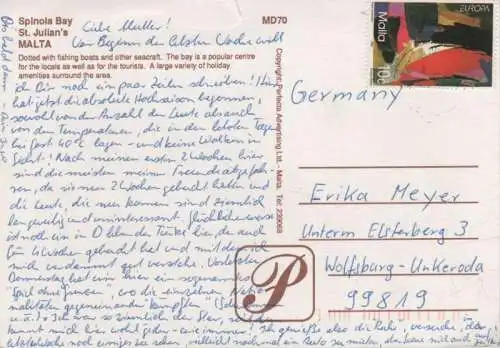 Spinola Bay
St. Julian's
MALTA
MD70
Dotted with fishing boats and other seacraft. The bay is a popular centre
for the locals as well as for the tourists. A large variety of holiday
amenities surround the area.
Copyright: Perfecta Advertising Ltd. - Malta. Tel:
EUROPA
Malta
Germany
Erika Meyer
Unterm Elsterberg 3
Wolfsburg-Unkeroda
99819
P
Liebe Mutter!
Vor Beginn der letzten Woche will
ich Dir noch ein paar Zeilen schreiben! Hier
hat jetzt die absolute Hochsaison begonnen,
sowohl von der Anzahl der Leute als auch
von den Temperaturen, die in den letzten Tagen
bei fast 40°C lagen - und keine Wolken in
Sicht! Nach meinen ersten 2 Wochen hier
sind die meisten meiner Freunde abgefah-
ren, da sie nur 2 Wochen gebucht hatten und
die Leute, die neu kamen sind ziemlich
langweilig und uninteressant. Glücklicherweise
ist noch ein in D lebender Türke hier, der auch
für 4 Wochen gebucht hat und mit dem ich
mich verdammt gut verstehe. Vorletzten
Donnerstag hat hier ein sogenanntes
"Spiel ohne Grenzen", wo die einzelnen Natio-
nalitäten gegeneinander kämpfen
u.ä.)! Ich war so ziemlich der Star,
kennt mich hier wohl jeder - wie immer! Ich genieße also die Ruhe, versuche,
noch einiges zu sehen, vielleicht noch mal ein Auto zu